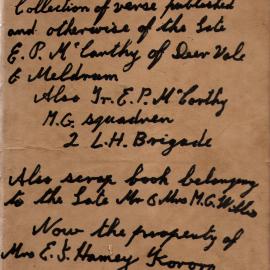 Collection of verse published
and otherwise of the late
E. P. McCarthy of Deer Vale
& Meldrum
Also Tr. E. P. McCarthy
M.G. squadren
2 L.H. Brigade
Also scrap book belonging
to the Late Mr & Mrs M.G. Willis
Now the property of
Mrs E. J. Hamey